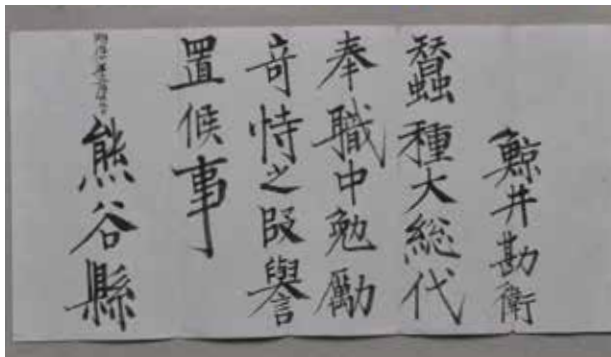 鯨井勘衛
蠶種大総代
奉職中勉勵
奇特之段譽
置候事
熊谷縣